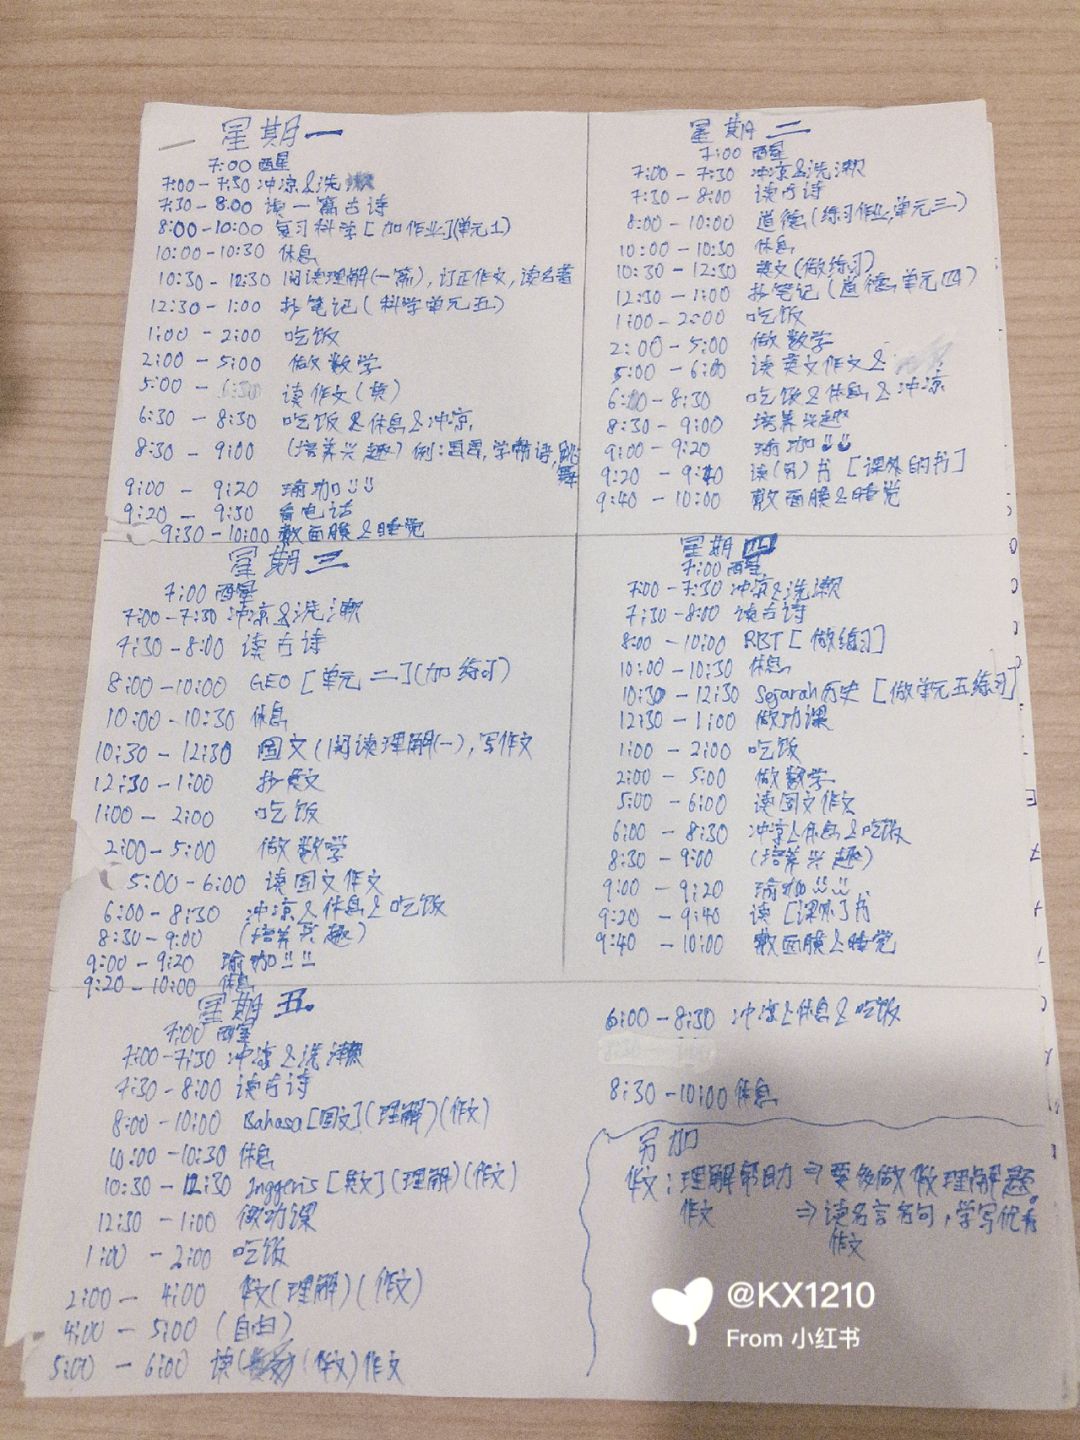 星期一
7:00 酉星
7:00-7:30 冲凉&洗漱
7:30-8:00 读一篇古诗
8:00-10:00 复习科学[加作业](单元1)
10:00-10:30 休息
10:30-12:30 阅读理解(一篇),订正作文,读名著
12:30-1:00 抄笔记(科学单元五)
1:00-2:00 吃饭
2:00-5:00 做数学
5:00-6:30 读作文(英)
6:30-8:30 吃饭&休息&冲凉
8:30-9:00 (培养兴趣)例:画画,学韩语,跳舞
9:00-9:20 瑜加
9:20-9:30 看电话
9:30-10:00 敷面膜&睡觉
星期二
7:00 酉星
7:00-7:30 冲凉&洗漱
7:30-8:00 读古诗
8:00-10:00 道德(练习作业,单元三)
10:00-10:30 休息
10:30-12:30 英文(做练习)
12:30-1:00 抄笔记(道德,单元四)
1:00-2:00 吃饭
2:00-5:00 做数学
5:00-6:00 读英文作文&
6:00-8:30 吃饭&休息&冲凉
8:30-9:00 培养兴趣
9:00-9:20 瑜加
9:20-9:40 读(另)书[课外的书]
9:40-10:00 敷面膜&睡觉
星期三
7:00 酉星
7:00-7:30 冲凉&洗漱
7:30-8:00 读古诗
8:00-10:00 GEO[单元二](加练习)
10:00-10:30 休息
10:30-12:30 国文(阅读理解(一),写作文
12:30-1:00 抄英文
1:00-2:00 吃饭
2:00-5:00 做数学
5:00-6:00 读国文作文
6:00-8:30 冲凉&休息&吃饭
8:30-9:00 (培养兴趣)
9:00-9:20 瑜加
9:20-10:00 休息
星期四
7:00 酉星
7:00-7:30 冲凉&洗漱
7:30-8:00 读古诗
8:00-10:00 RBT[做练习]
10:00-10:30 休息
10:30-12:30 Sejarah历史[做单元五练习]
12:30-1:00 做功课
1:00-2:00 吃饭
2:00-5:00 做数学
5:00-6:00 读国文作文
6:00-8:30 冲凉&休息&吃饭
8:30-9:00 (培养兴趣)
9:00-9:20 瑜加
9:20-9:40 读[课外]书
9:40-10:00 敷面膜&睡觉
星期五
7:00 酉星
7:00-7:30 冲凉&洗漱
7:30-8:00 读古诗
8:00-10:00 Bahasa[国文](理解)(作文)
10:00-10:30 休息
10:30-12:30 Inggeris[英文](理解)(作文)
12:30-1:00 做功课
1:00-2:00 吃饭
2:00-4:00 华文(理解)(作文)
4:00-5:00 (自由)
5:00-6:00 读(华文)作文
6:00-8:30 冲凉&休息&吃饭
8:30-10:00 休息
另加
华文:理解帮助⇒要多做做理解题。
作文 ⇒读名言名句,学写优秀
作文
@KX1210
From 小红书